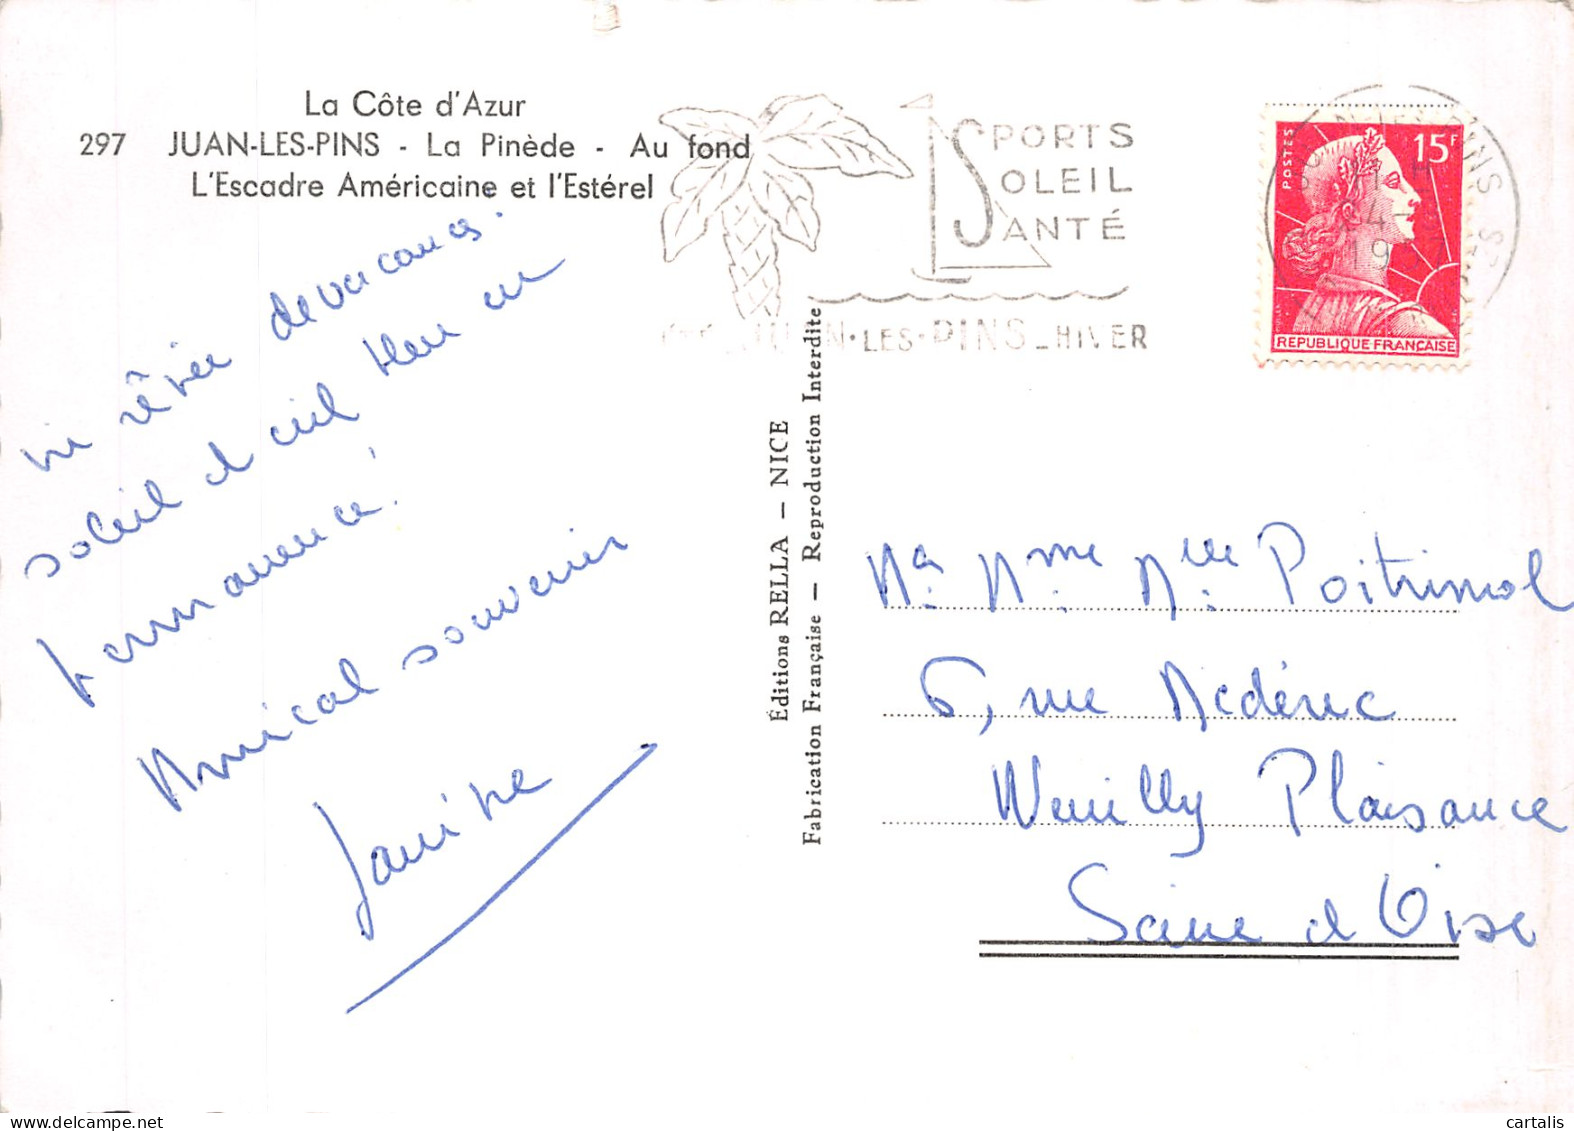 La Côte d'Azur
297 JUAN-LES-PINS - La Pinède - Au fond
L'Escadre Américaine et l'Estérel
SPORTS
SOLEIL
SANTÉ
JUAN·LES·PINS_HIVER
POSTES
15F
REPUBLIQUE FRANÇAISE
19
vie rêvée de vacances.
soleil et ciel bleu en
permanence!
Amical souvenir
Janine
Éditions RELLA — NICE
Fabrication Française — Reproduction Interdite
Mr. Mme. Mlle. Poitrimol
6, rue Médéric
Neuilly Plaisance
Seine et Oise
cartalis